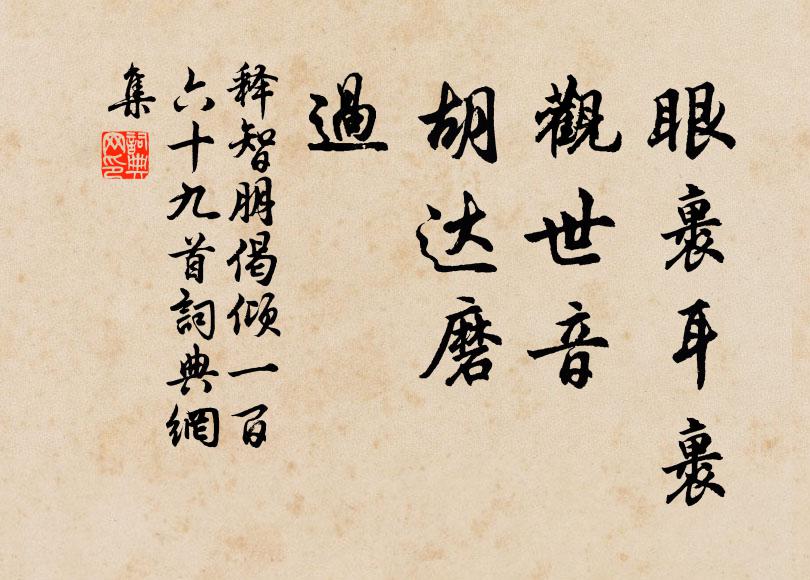 眼裏耳裏
觀世音
胡达磨
過
释智朋偈倾一百
六十九首詞典網
集
詞典網印